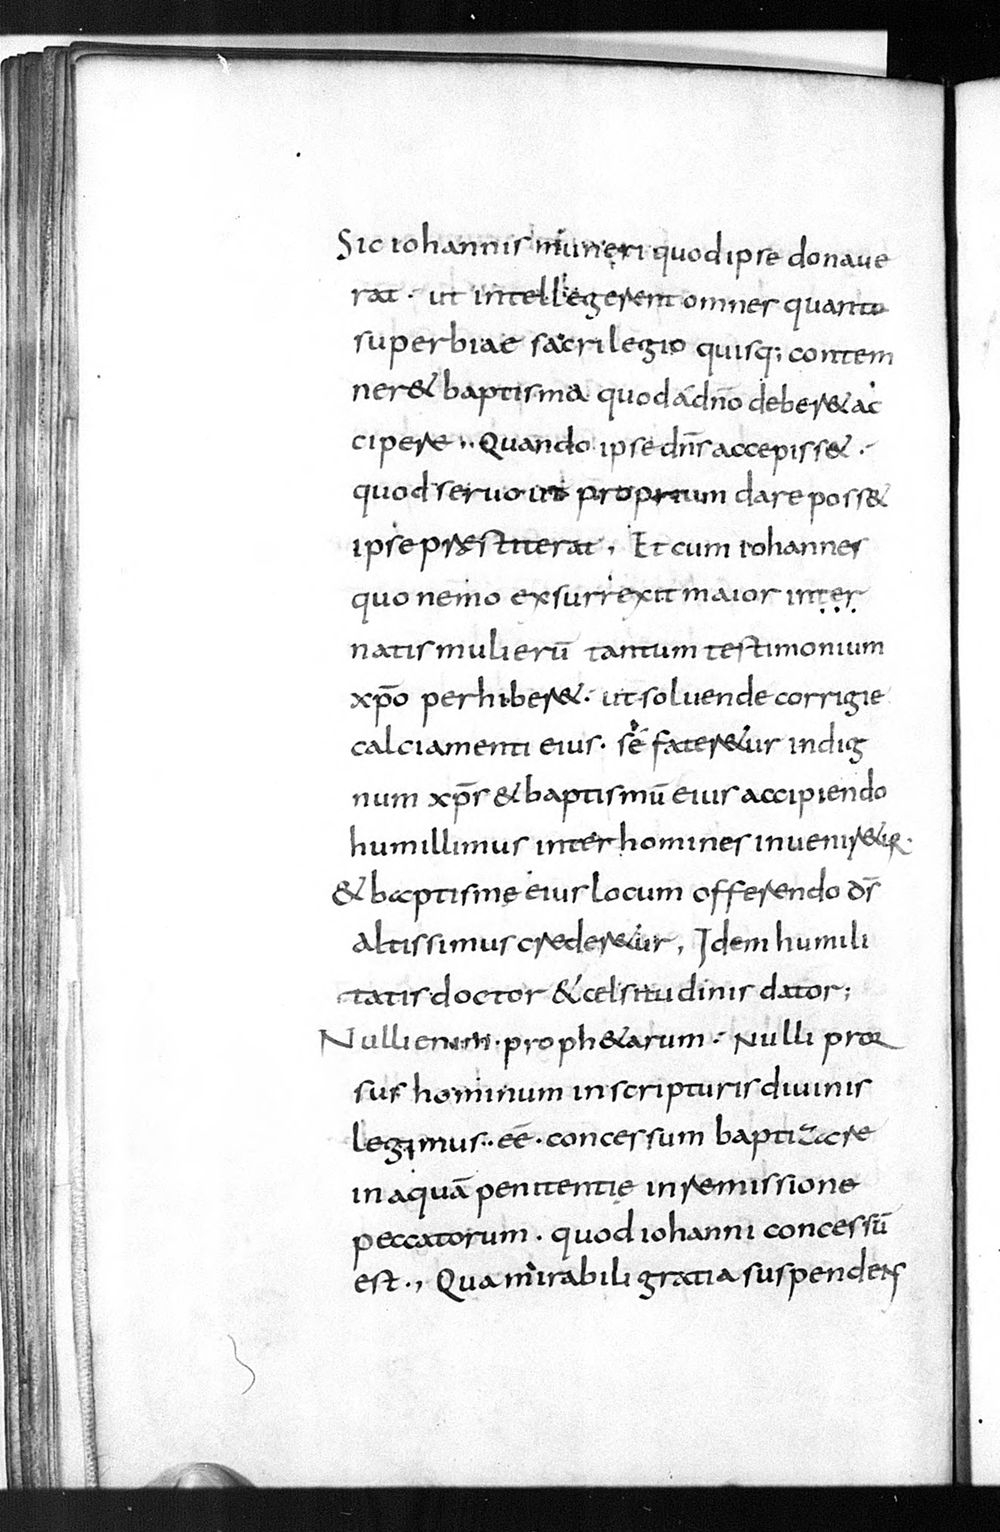 Sic iohannis muneri quod ipse donaue
rat · ut intellegerent omnes quanto
superbiae sacrilegio quisq; contem
ner& baptisma quod a dño deber& ac
cipere ·, Quando ipse dñs accepiss& ·
quod seruo ut proprium dare poss&
ipse praestiterat, Et cum iohannes
quo nemo exsurrexit maior inter
natis mulierū tantum testimonium
xp̄o perhiber& · ut soluende corrigie
calciamenti eius · sé fater&ur indig
num xp̄s & baptismū eius accipiendo
humillimus inter homines inuenir&ur ·
& baptisme eius locum offerendo d̄s
altissimus creder&ur, Idem humili
tatis doctor & celsitudinis dator;
Nulli enim · proph&arum · Nulli pror
sus hominum in scripturis diuinis
legimus · eē · concessum baptizare
in aquā penitentię in remissione
peccatorum · quod iohanni concessū
est ·, Qua mirabili gratia suspendens